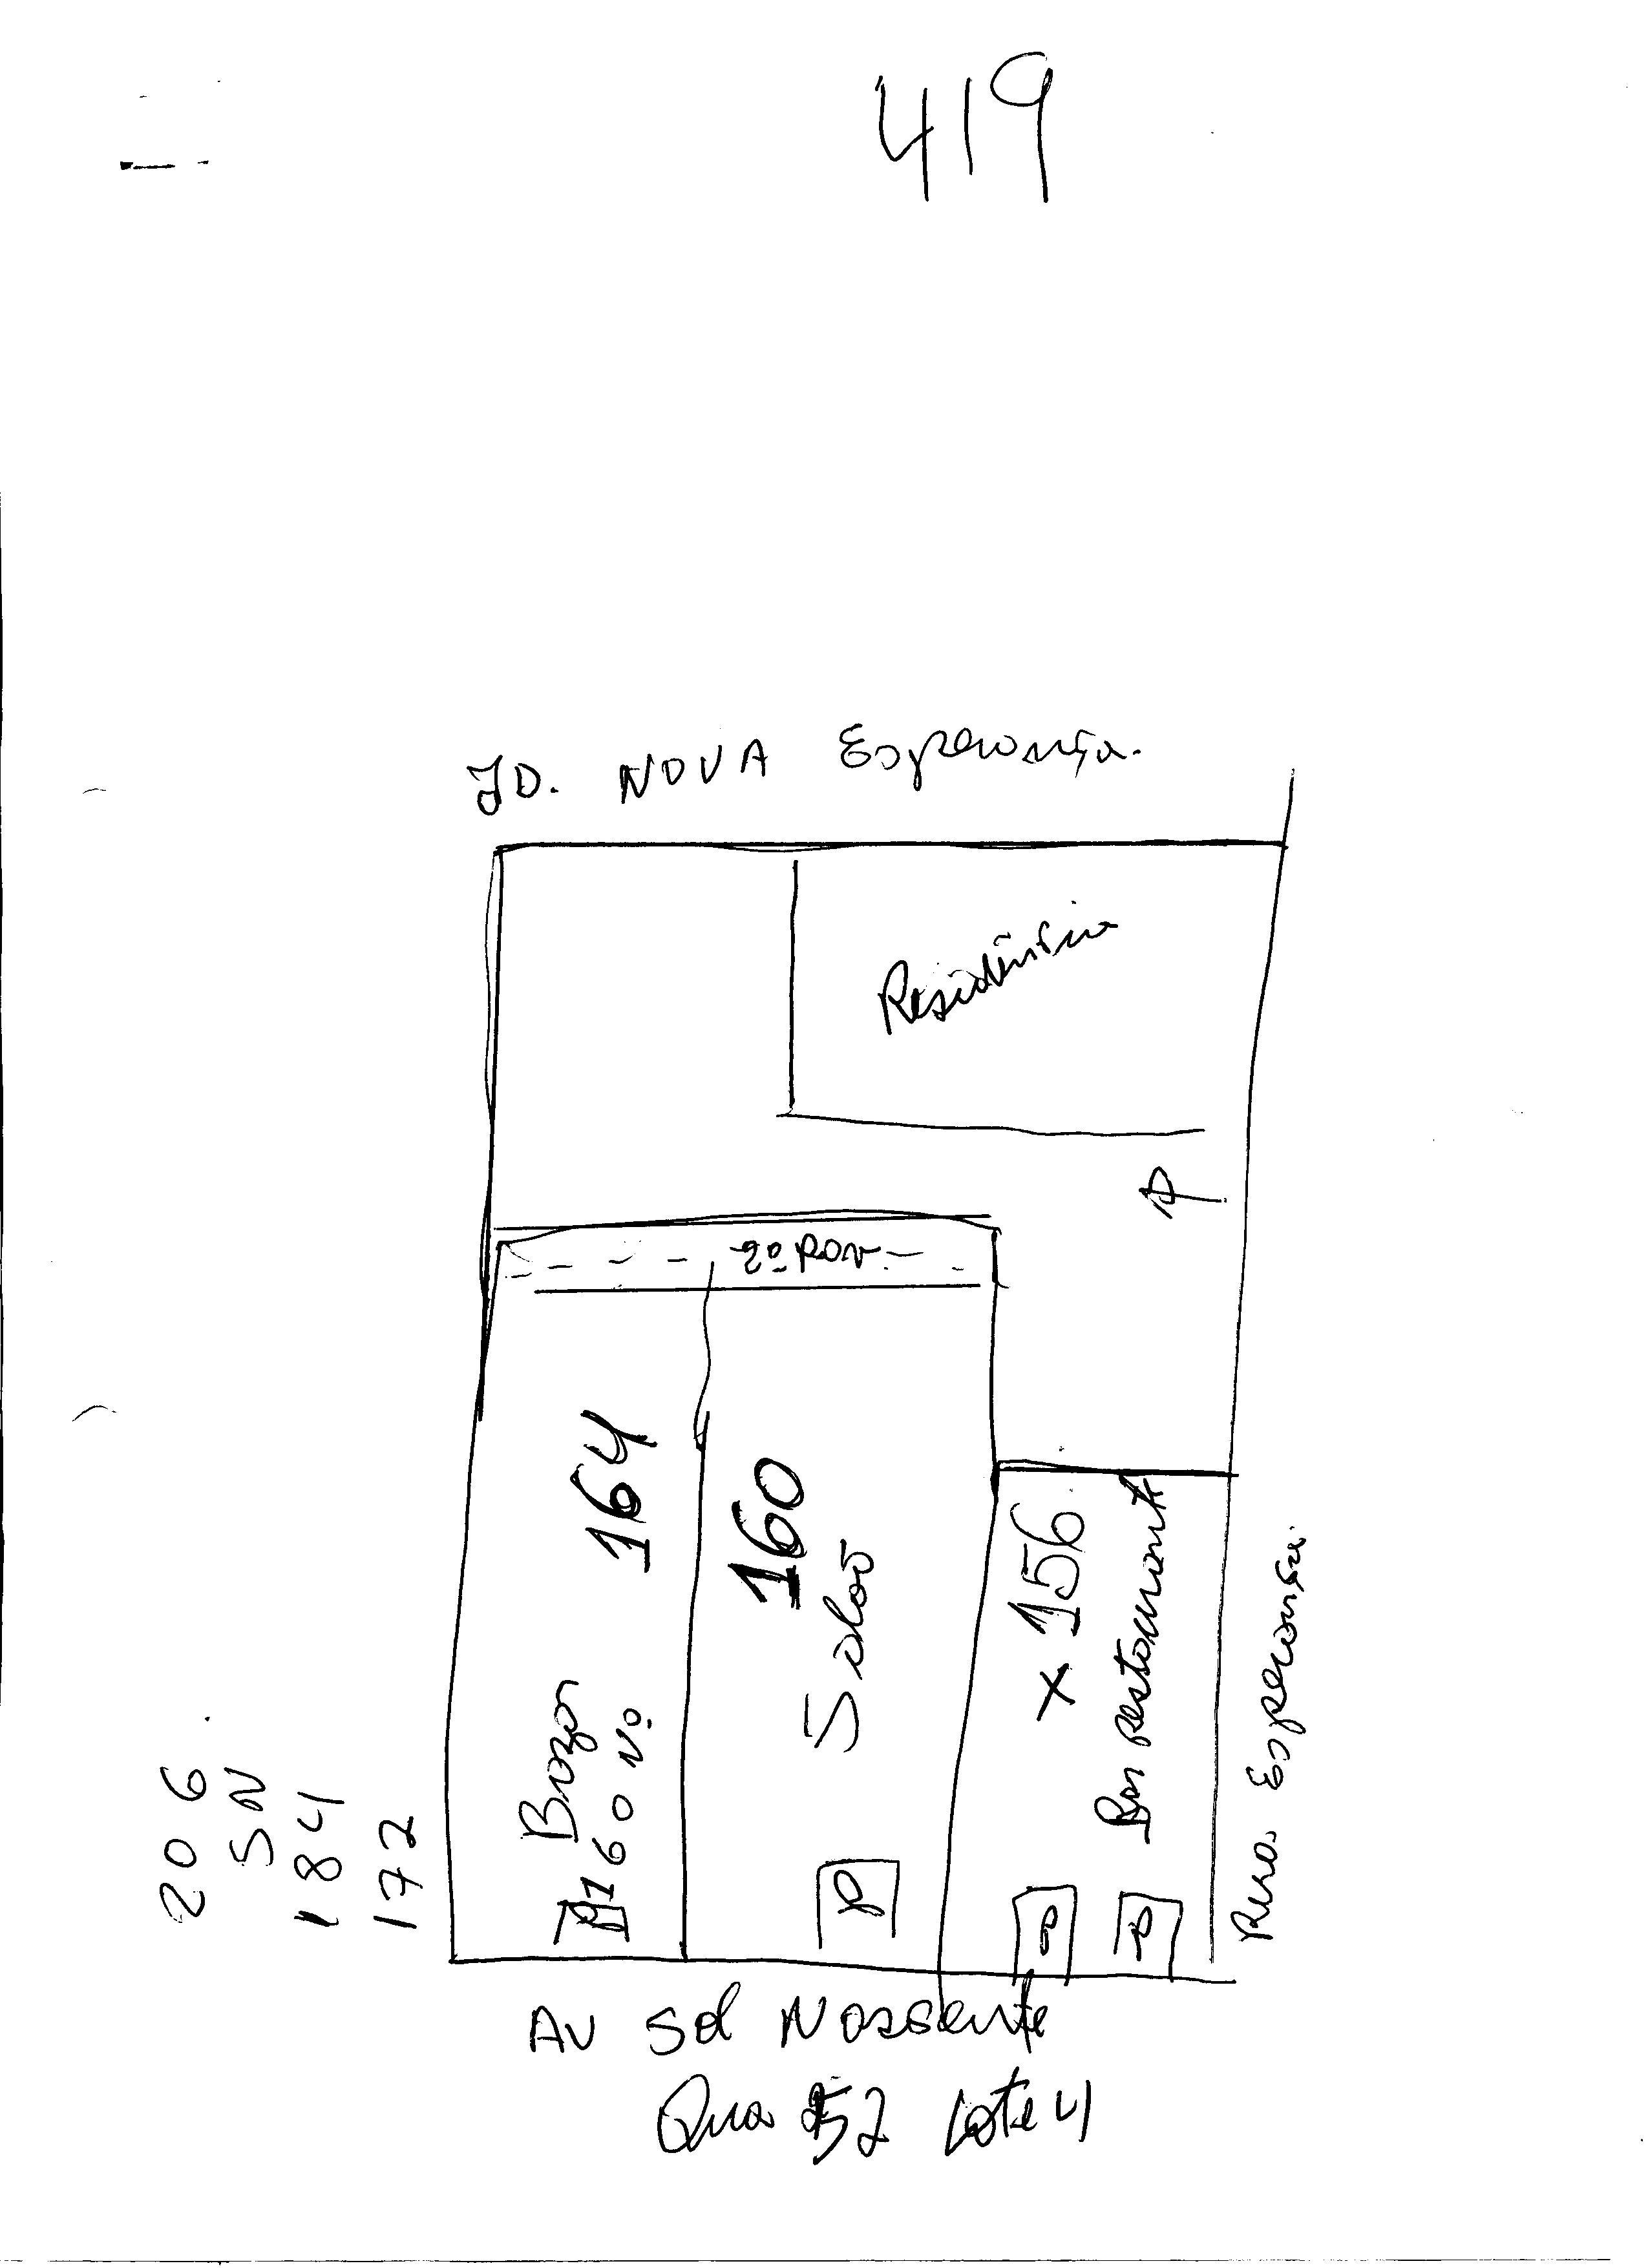 419
JD. NOVA Esperança.
Residência
P
2º PAV
164
Bazar
160 Nº
160
Salão
P
x 156
Bar restaurante
P
P
Rua Esperança
206
SN
184
172
AV Sol Nascente
Qua 52 Lote 4